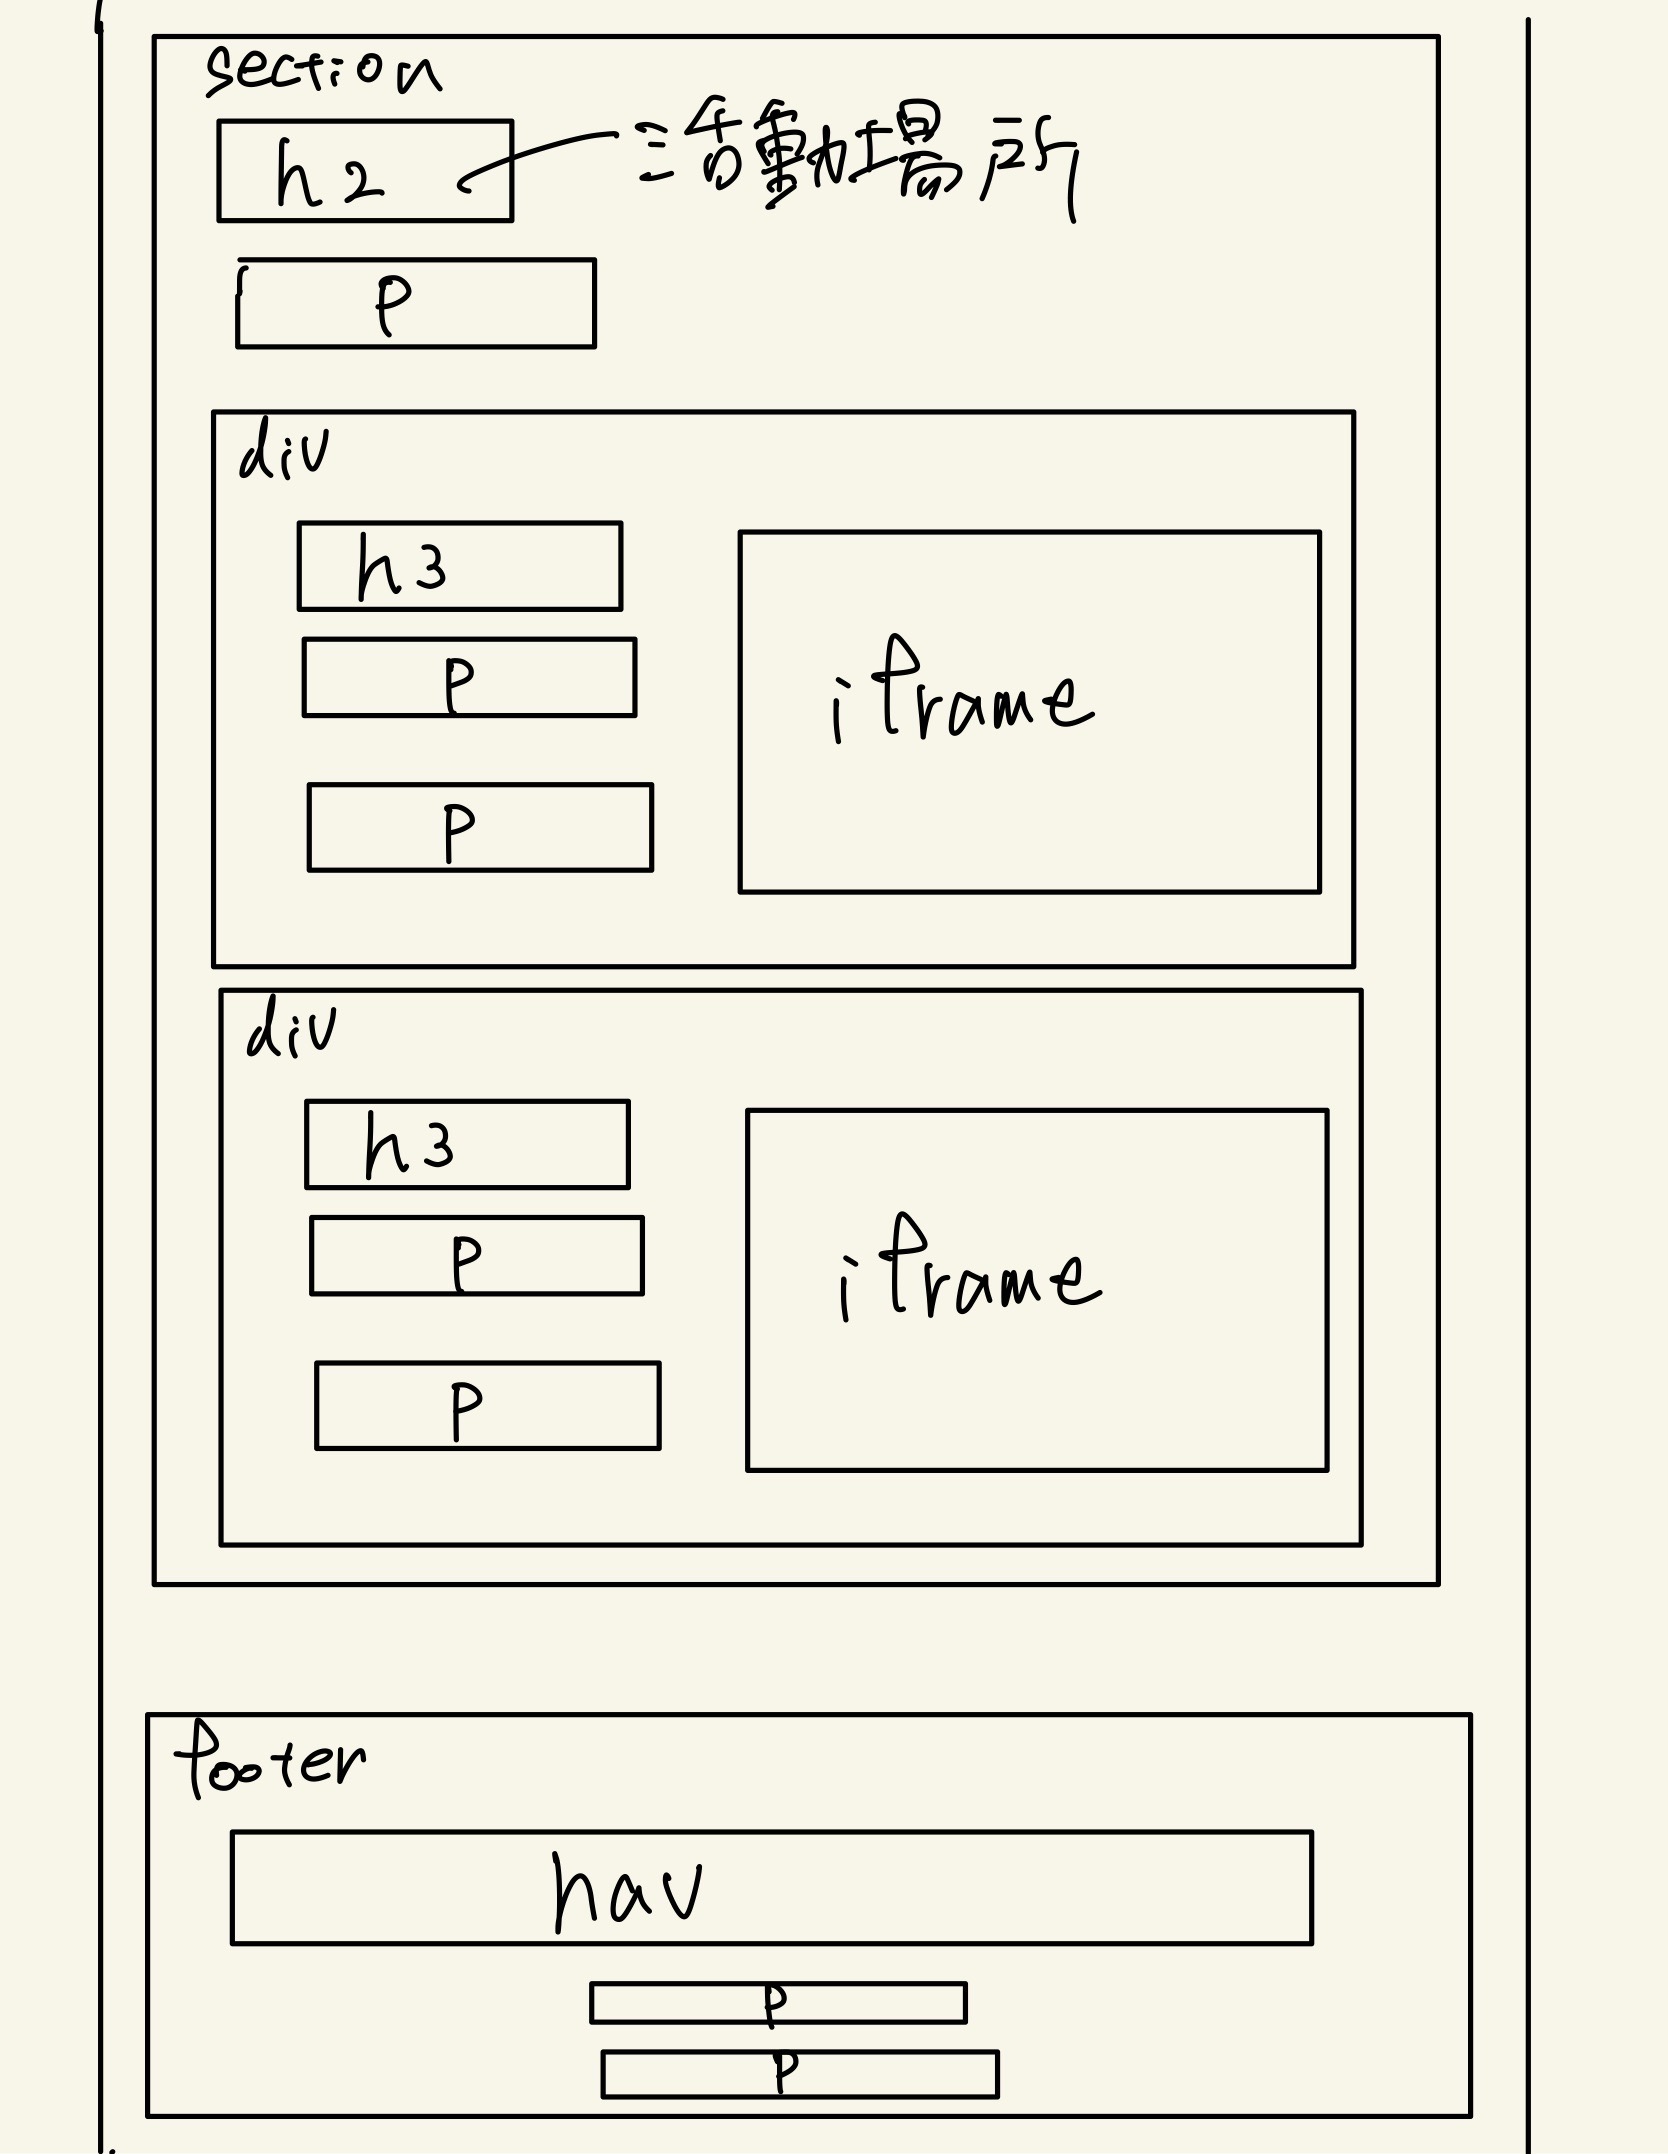 section
h2 活動場所
p
div
h3
p
iframe
p
div
h3
p
iframe
p
footer
nav
p
p